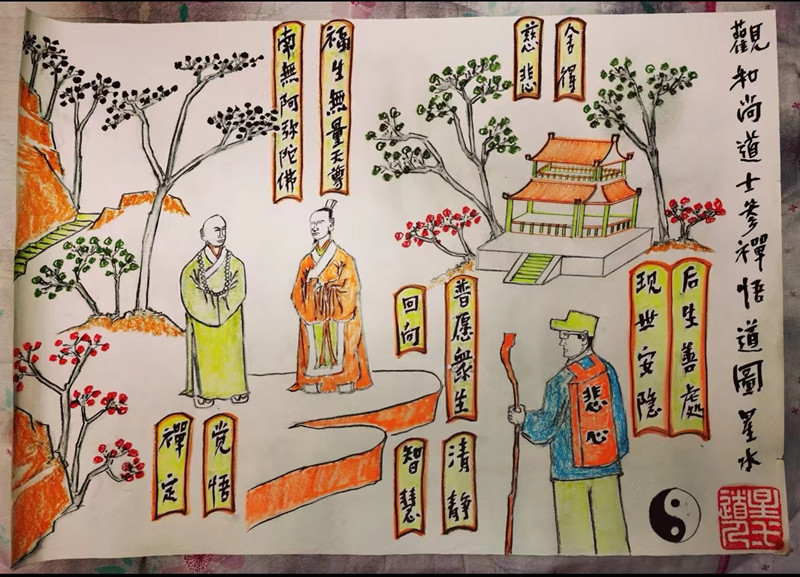 觀和尚道士參禪悟道圖星水
舍得
慈悲
福生無量天尊
南無阿弥陀佛
后生善處
现世安隐
普愿衆生
回向
悲心
清静
智慧
觉悟
禪定